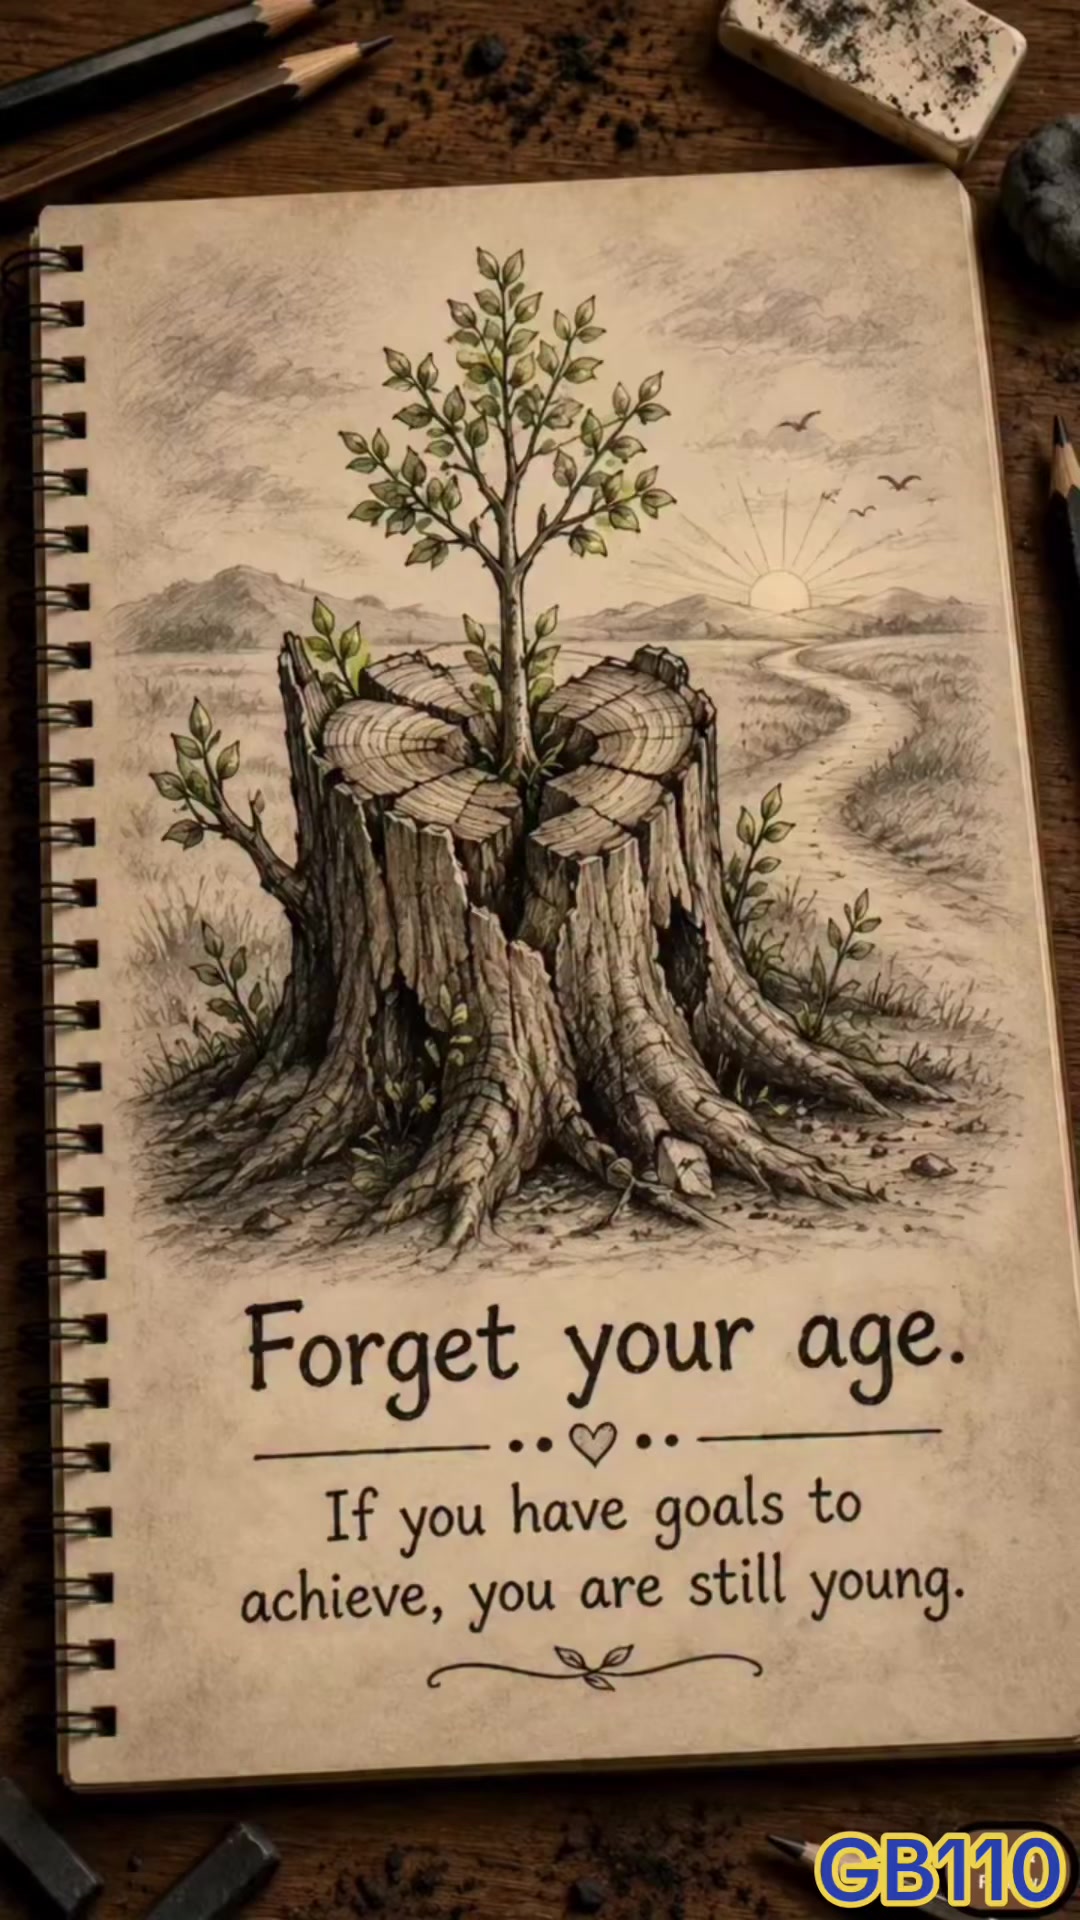 Forget your age.
If you have goals to
achieve, you are still young.
GB110